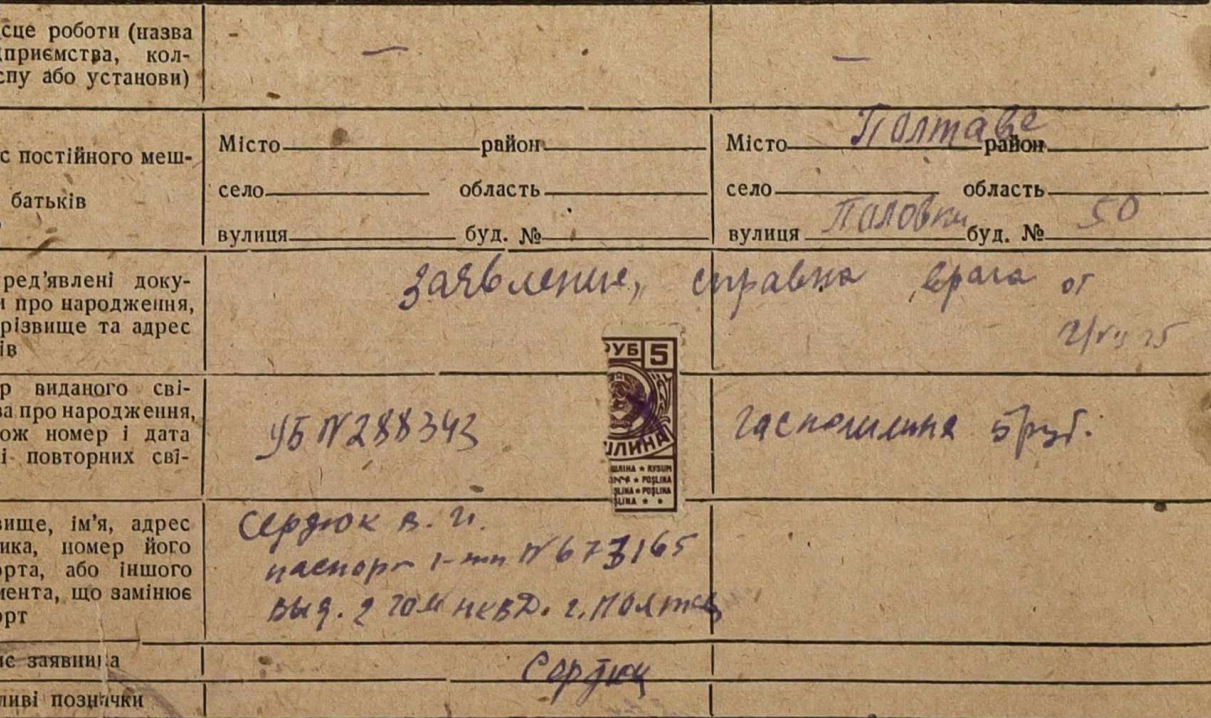 сце роботи (назва
дприємства, кол-
спу або установи)
—
—
с постійного меш-
батьків
Місто район
село область
вулиця буд. №
Місто Полтаве район
село область
вулиця Половки буд. № 50
ред'явлені доку-
и про народження,
різвище та адрес
ів
Заявление, справка врача от
р виданого сві-
ва про народження,
кож номер і дата
і повторних сві-
УБ N 288343
РУБ 5
ШЛИНА
POSLINA
госпошлина 5 руб.
вище, ім'я, адрес
ика, номер його
орта, або іншого
мента, що замінює
орт
Сердюк В. И.
паспорт N 673165
выд. 2 гом НКВД. г. Полтав
ис заявника
Сердюк
ливі позначки